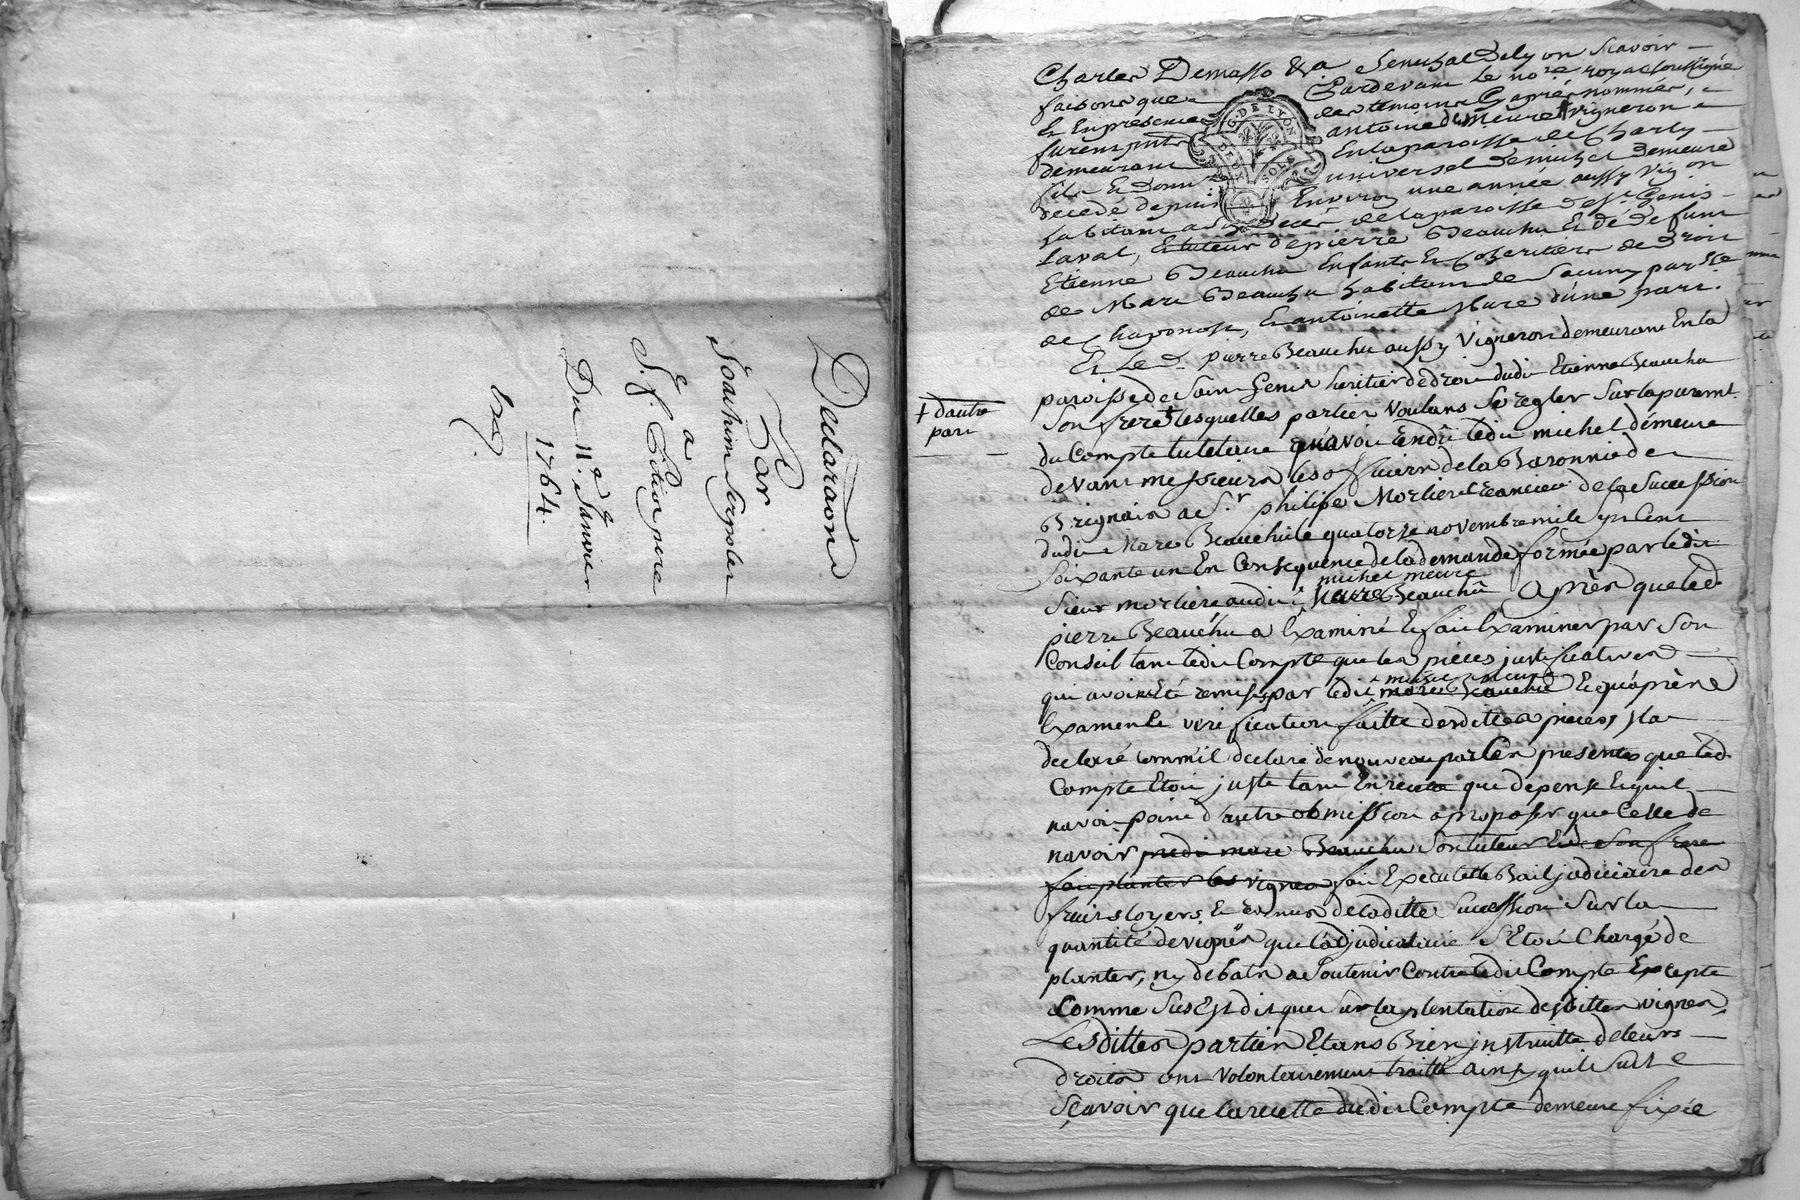 Declaraôn
Par
Joachim
a
S.r f.
Du 11.e Janvier
1764.
Charles Demasso &a Senechal De Lyon Scavoir
faisons que Pardevant le no.re royal soussigné
Et En presence des temoins Cy après nommés,
furent pnts antoine demeure vigneron
demeurant En la paroisse de Charly
fils Et donn.re universel de michel Demeure
decedé depuis Environ une année aussy vig.on
habitant a de la paroisse de S.t Genis
Laval, Et tuteur de pierre Beauchu Et de defunt
Etienne Beauchu Enfants Et Coheritiers de droit
de Marc Beauchu habitant de par.sse
de Chaponost, Et antoinette Mure d'une part.
Et Le d. pierre Beauchu aussy Vigneron demeurant En la
paroisse de Saint Genis heritier de droit dudit Etienne Beauchu
Son frere + lesquelles parties Voulans Se regler Sur le payem.t
+ d'autre
part
du Compte tutelaire qu'avoit Rendu ledit michel demeure
devant messieurs les officiers de la Baronnie de
Brignais a S.r philipe Morlier Creancier de la Succession
dudit Marc Beauchu le quatorze novembre mil sept Cent
Soixante un En Consequence de la demande formée par ledit
Sieur morlier audit michel meure Beauchu Après que led.
pierre Beauchu a Examiné Et fait Examiner par Son
Conseil tant ledit Compte que les pièces justificatives
qui avoient Eté remises par ledit michel meure marc Beauchu Et qu'après
Examen Et verification faitte desdittes pieces, Il a
declaré Comm'il declare de nouveau par Ces presentes que led.
Compte Etoit juste tant En recette que depense Et qu'il
n'avoit point d'autre obmission a proposer que Celle de
n'avoir marc Beauchu Son tuteur Et de Son frere
fait planter les vignes fait Executer le Bail judiciaire des
fruits loyers Et revenus de laditte Succession Sur la
quantité de vignes que l'adjudicataire S'Etoit Chargé de
planter, ny debats a Soutenir Contre ledit Compte Excepte
Comme Sus Est dit que Sur la plentation desdittes vignes,
Lesdittes parties Etans Bien instruitte de leurs
droits ont Volontairement traitté ainsy qu'il Suit
Sçavoir que la recette dudit Compte demeure fixée